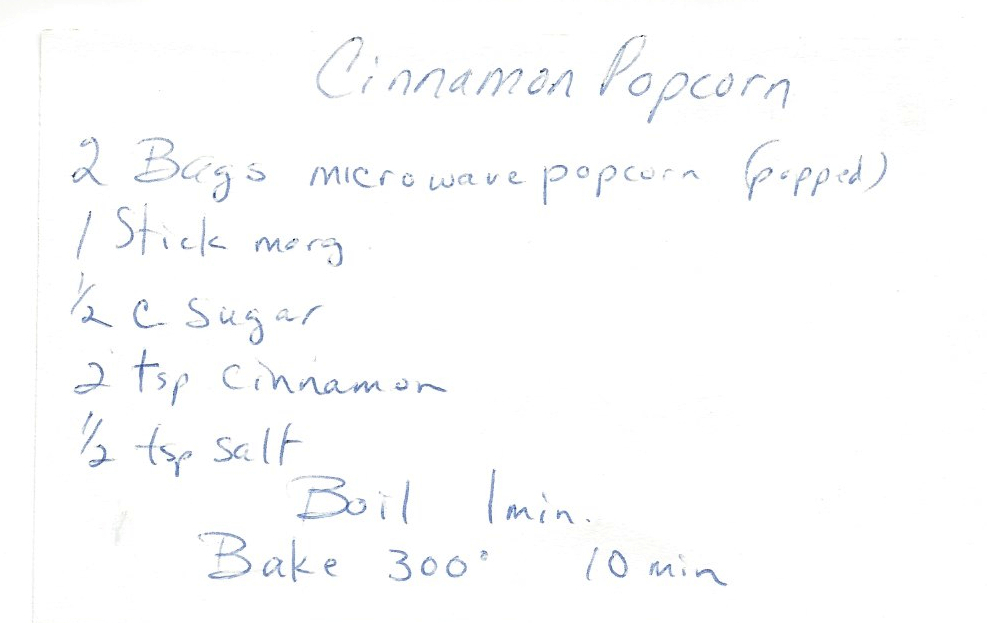 Cinnamon Popcorn
2 Bags microwave popcorn (popped)
1 Stick marg
1/2 c Sugar
2 tsp cinnamon
1/2 tsp salt
Boil 1min.
Bake 300° 10 min